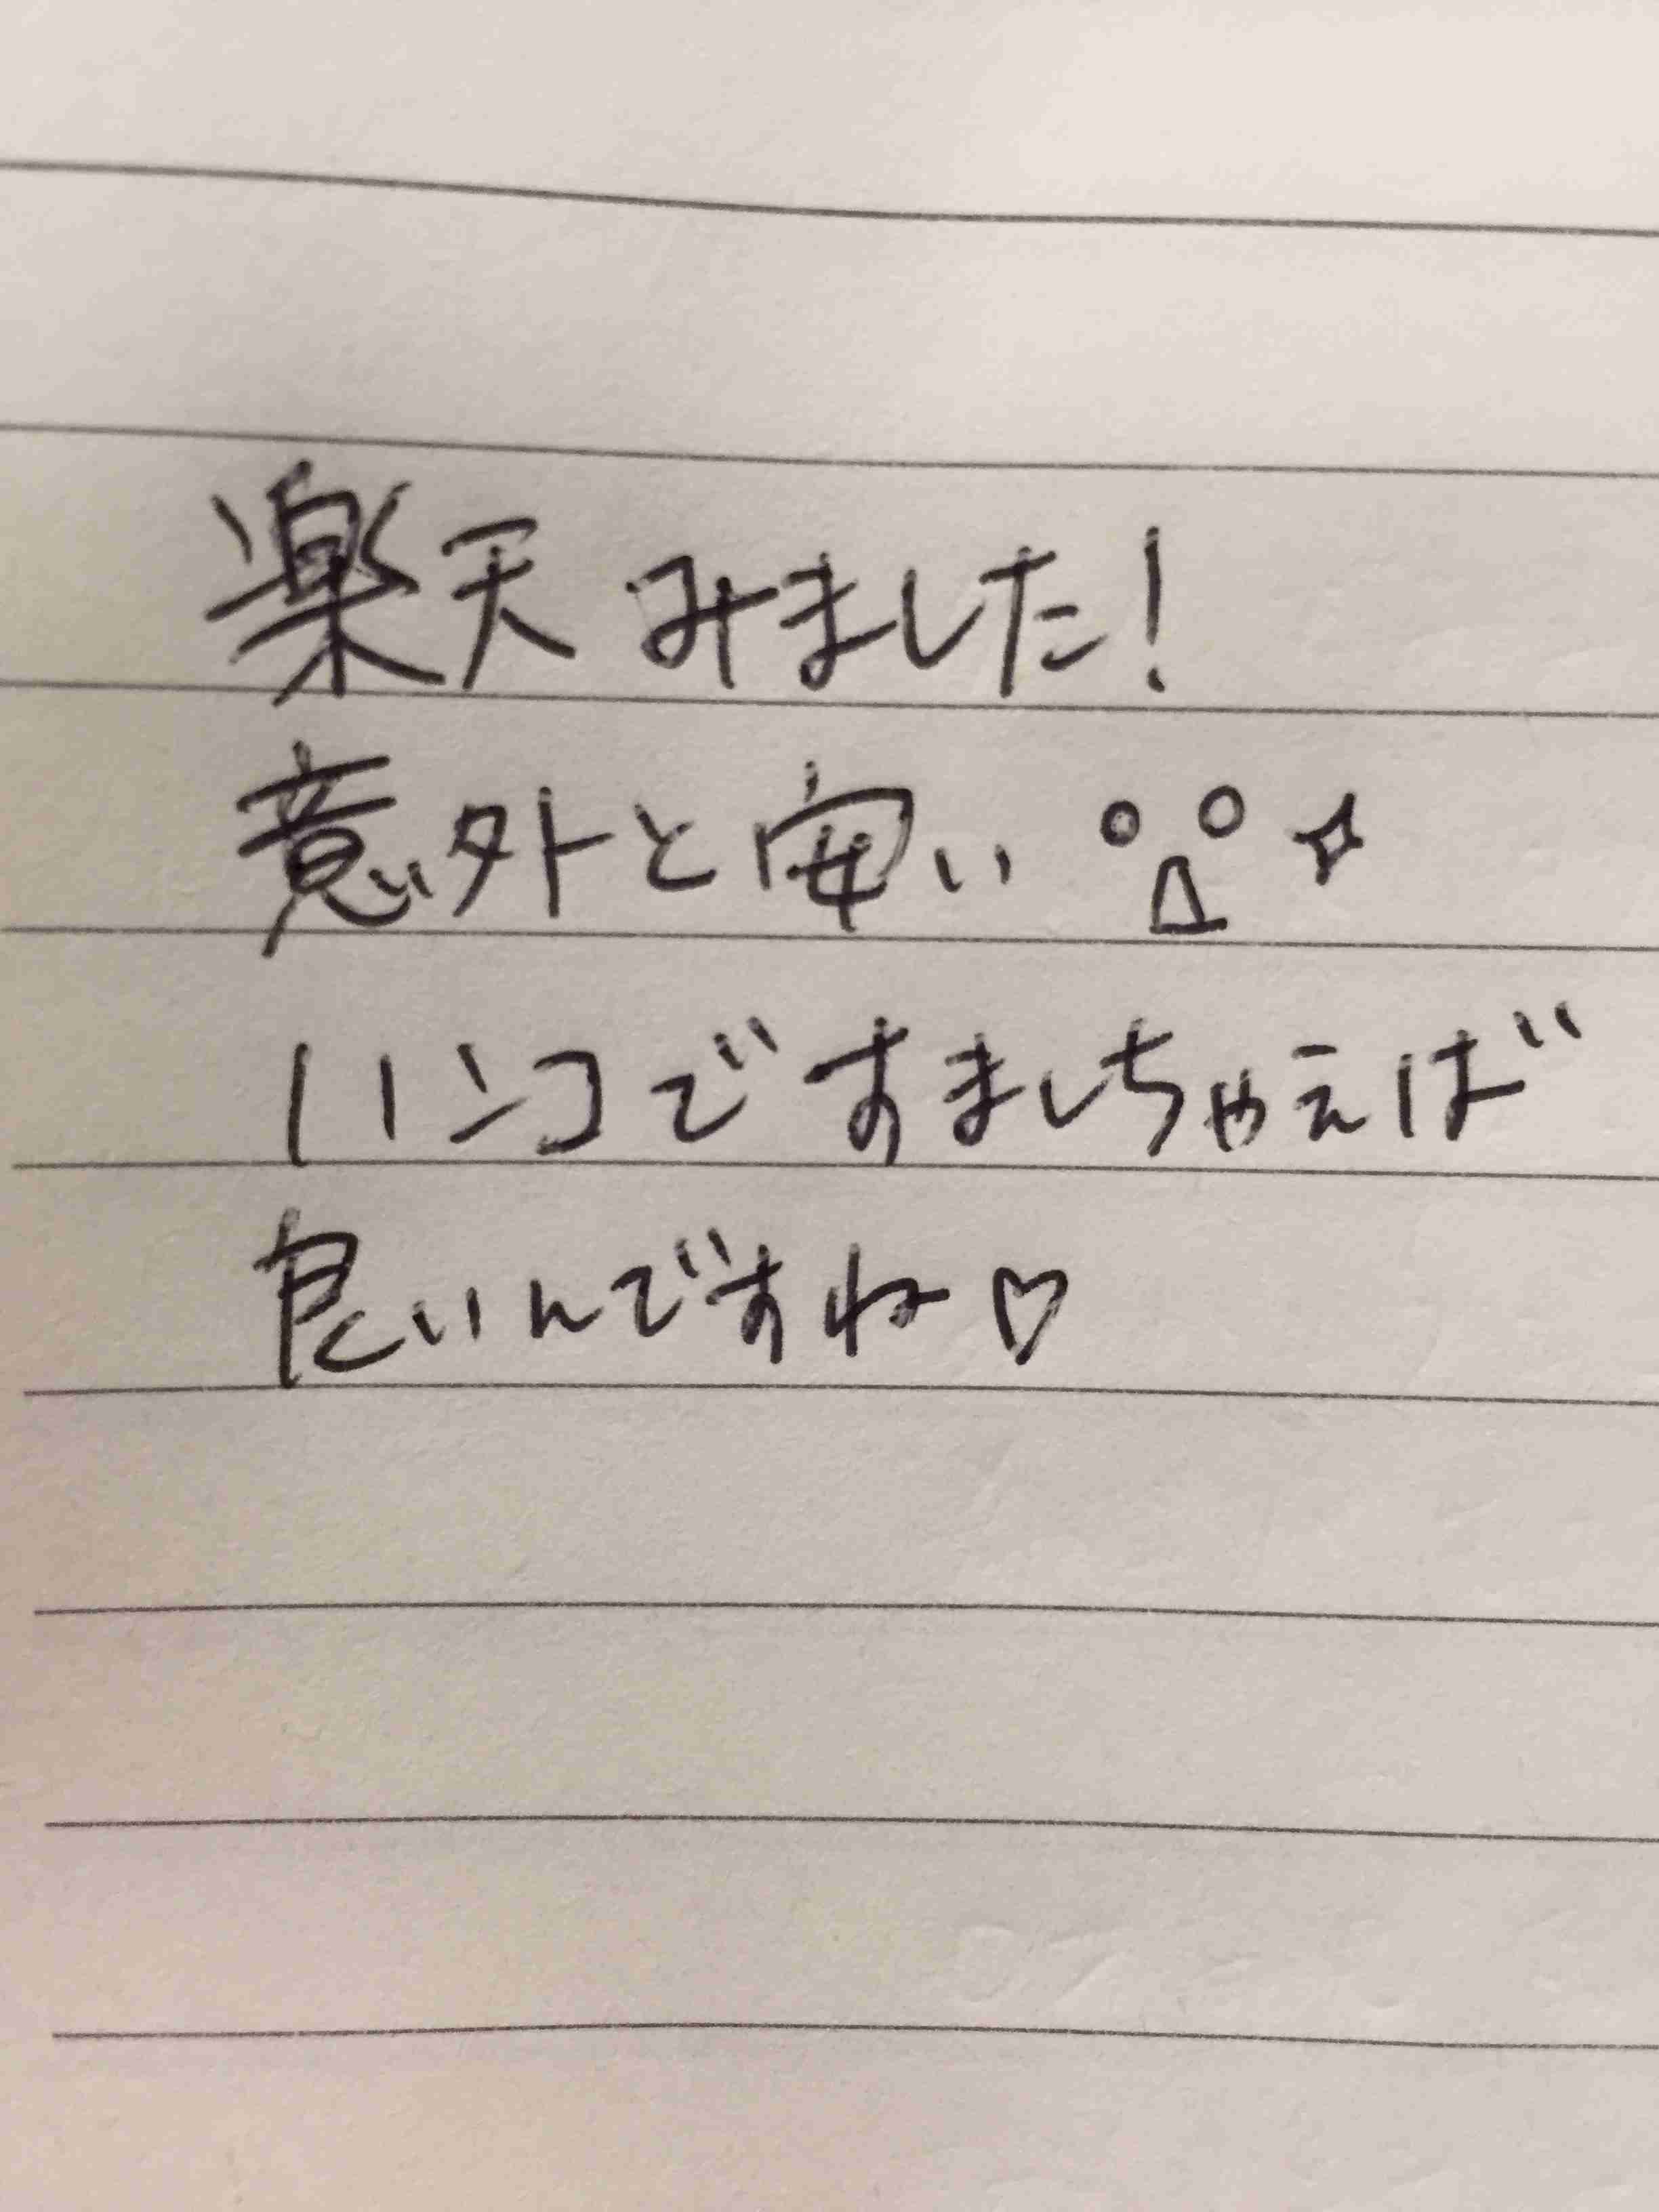 楽天みました!
意外と安い °Д°✧
ハンコですましちゃえば
良いんですね♡